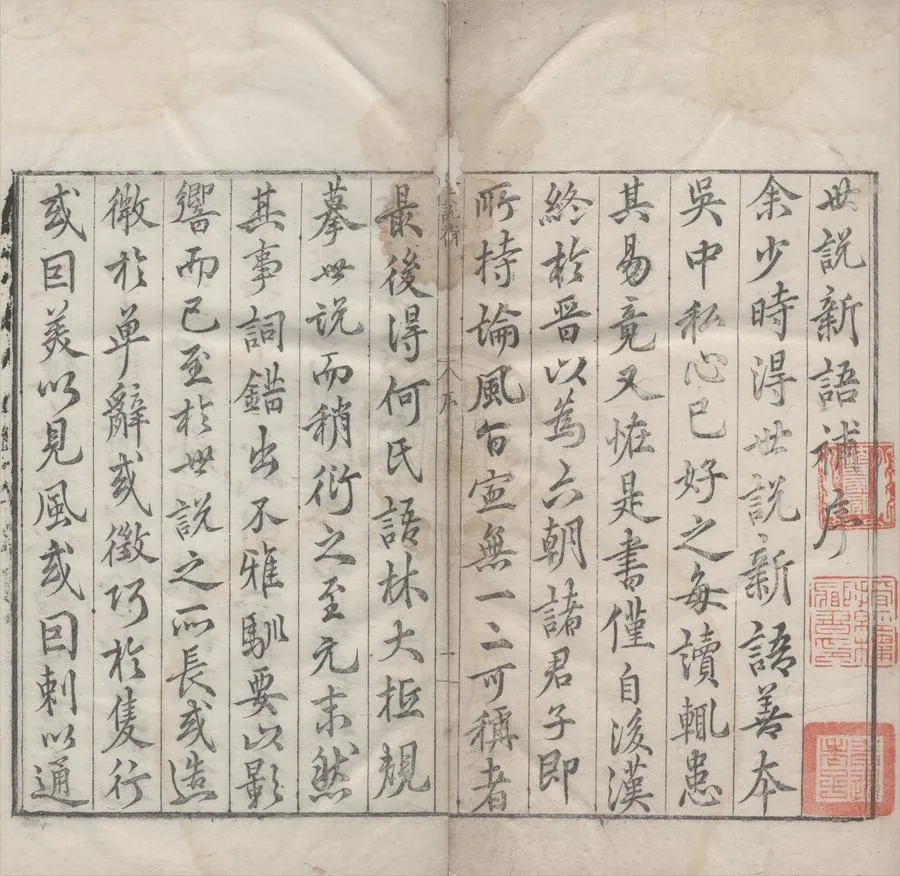 世説新語補序
余少時得世説新語善本
吳中私心已好之每讀輒患
其易竟又恠是書僅自後漢
終於晉以為六朝諸君子即
所持論風旨寧無一二可稱者
最後得何氏語林大抵規
摹世説而稍衍之至元末然
其事詞錯出不雅馴要以影
響而已至於世説之所長或造
微於單辭或徵巧於隻行
或因美以見風或因刺以通